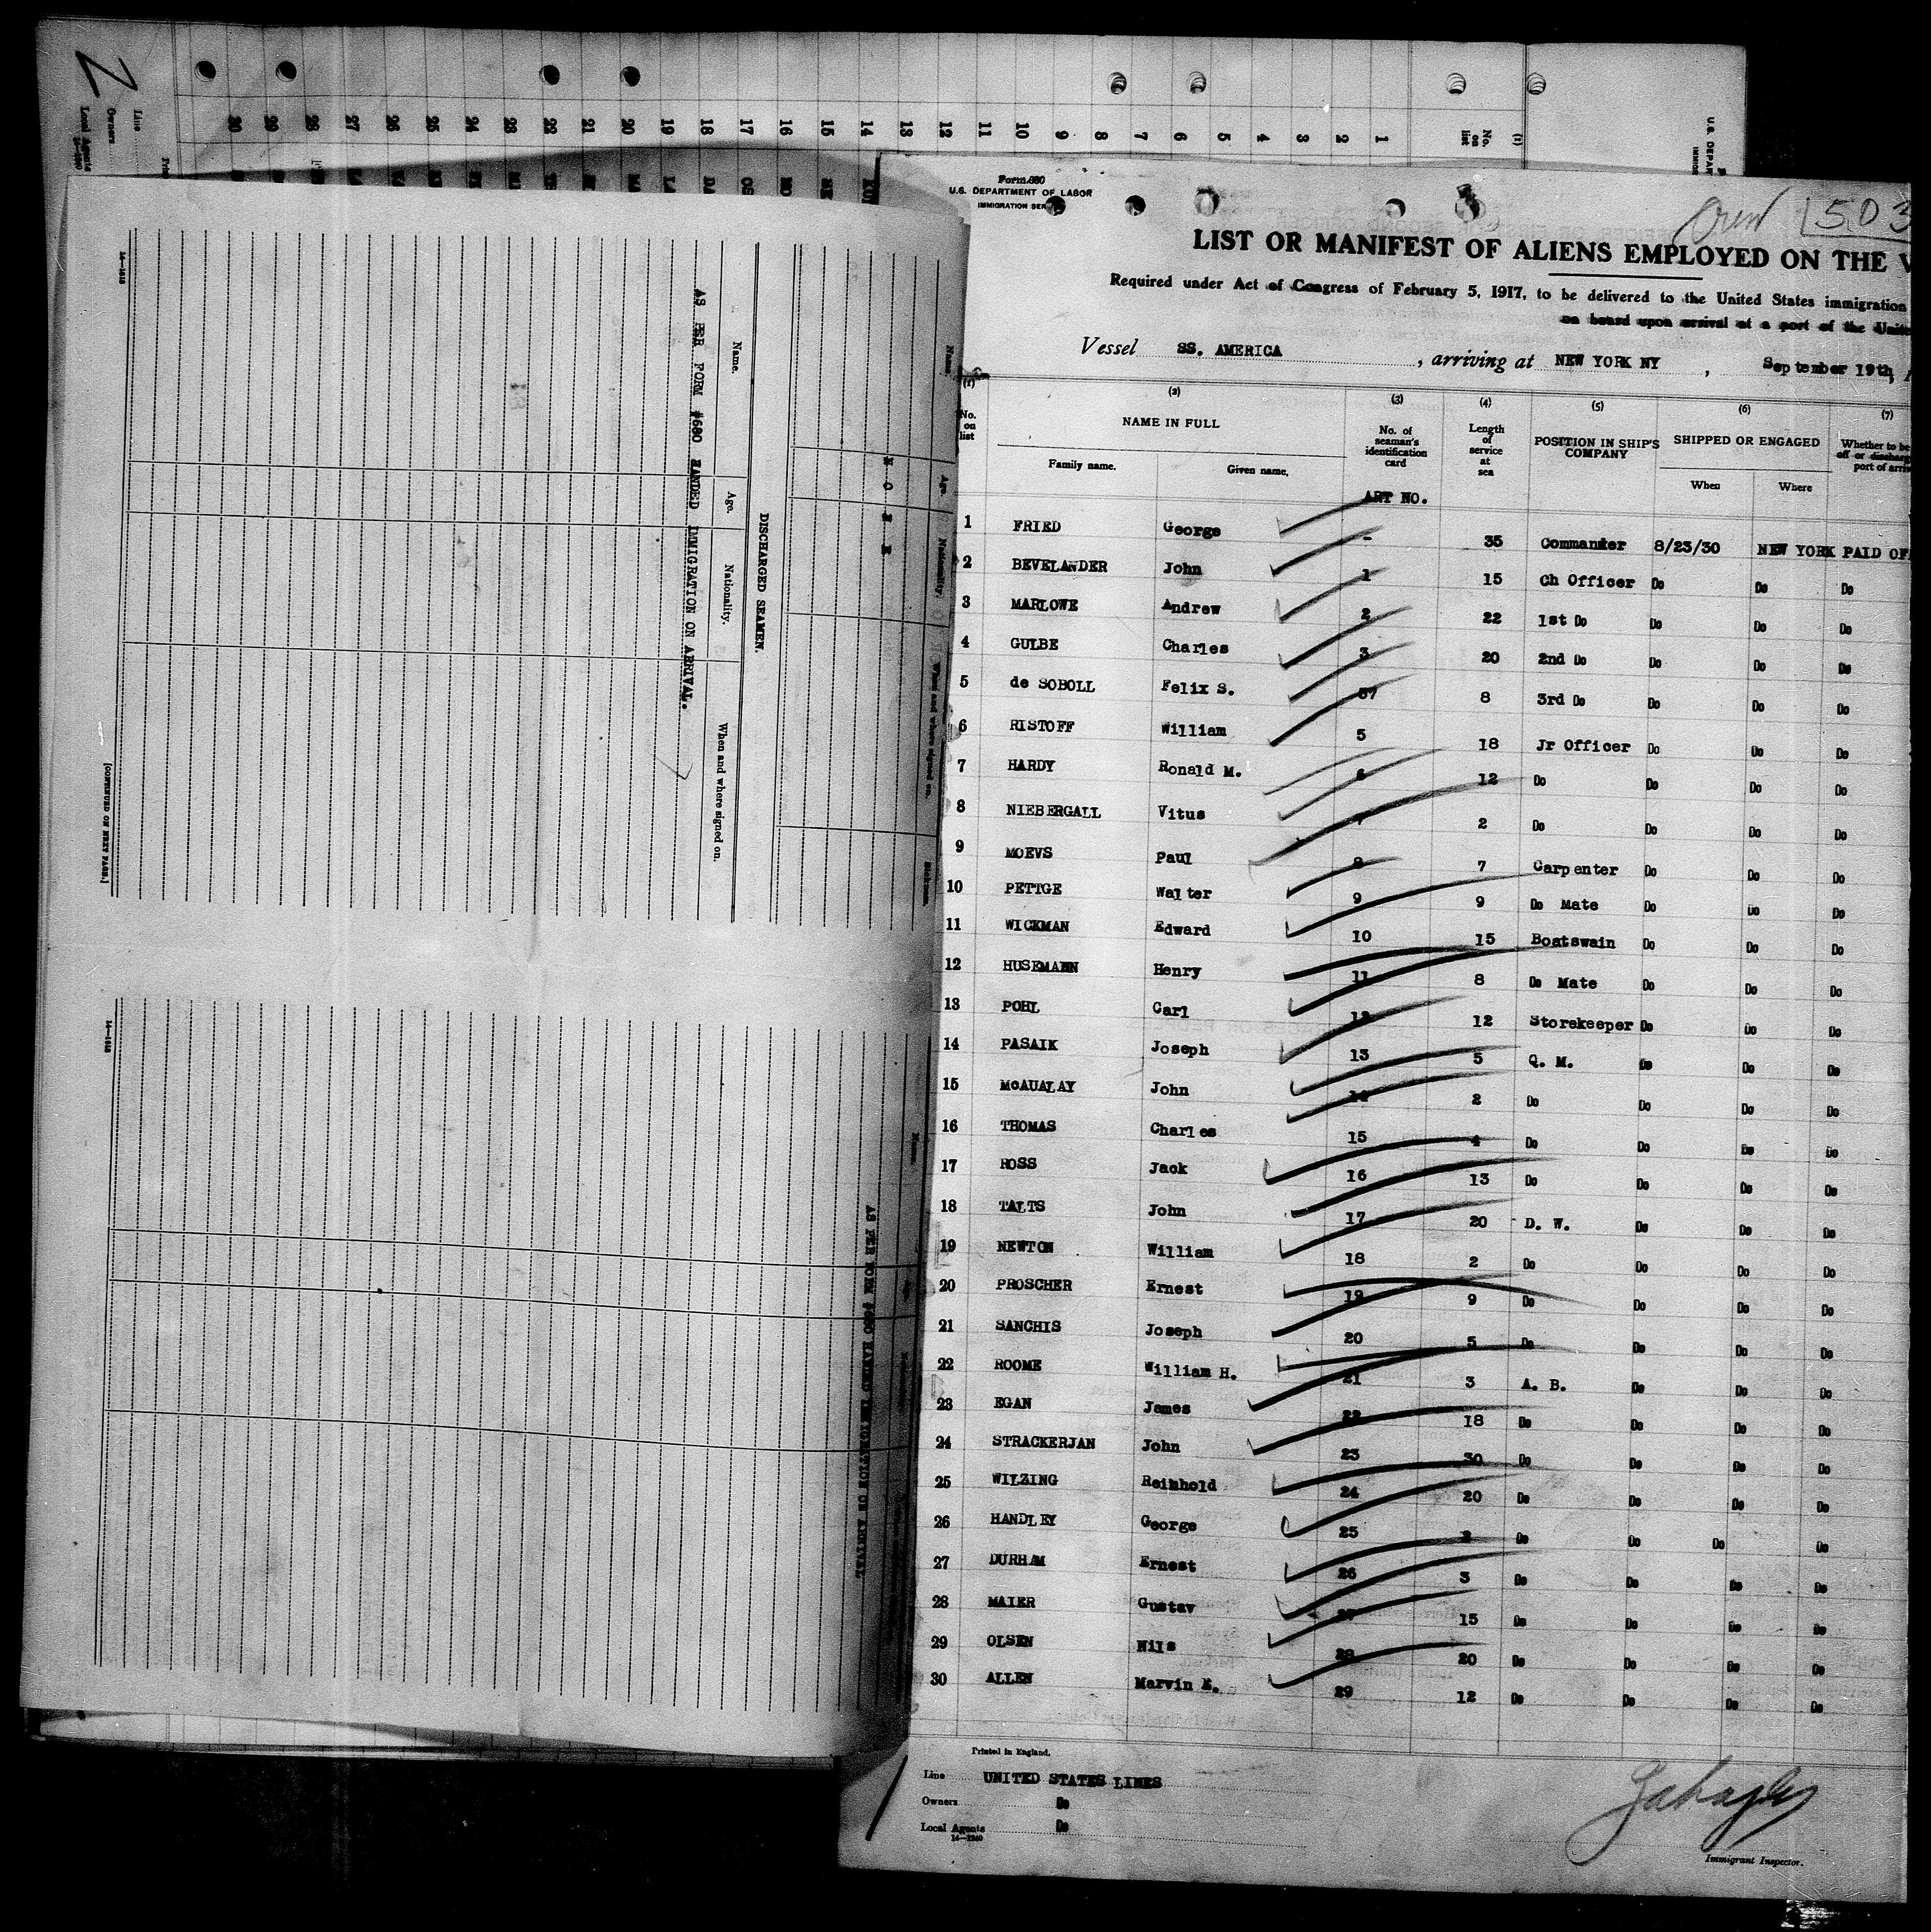 Line
Owners
Local Agents
14-1240
30 29 28 27 26 25 24 23 22 21 20 19 18 17 16 15 14 13 12 11 10 9 8 7 6 5 4 3 2 1 No. on list (1)
14-1240
Name. Age. Nationality. When and where signed on.
NONE
DISCHARGED SEAMEN.
Name. Age. Nationality. When and where signed on.
AS PER FORM #680 HANDED IMMIGRATION ON ARRIVAL.
[CONTINUED ON NEXT PAGE.]
AS PER FORM #680 HANDED IMMIGRATION ON ARRIVAL
Form 680
U.S. DEPARTMENT OF LABOR
IMMIGRATION SER
Crew 503
LIST OR MANIFEST OF ALIENS EMPLOYED ON THE V
Required under Act of Congress of February 5, 1917, to be delivered to the United States immigration
on board upon arrival at a port of the Unite
Vessel SS. AMERICA, arriving at NEW YORK NY, September 19th,
(1) (2) (3) (4) (5) (6) (7)
No. on list NAME IN FULL No. of seaman's identification card Length of service at sea POSITION IN SHIP'S COMPANY SHIPPED OR ENGAGED Whether to be off or discharg port of arriv
Family name. Given name. When Where
ART NO.
1 FRIED George - 35 Commander 8/23/30 NEW YORK PAID OF
2 BEVELANDER John 1 15 Ch Officer Do Do Do
3 MARLOWE Andrew 2 22 1st Do Do Do Do
4 GULBE Charles 3 20 2nd Do Do Do Do
5 de SOBOLL Felix S. 57 8 3rd Do Do Do Do
6 RISTOFF William 5 18 Jr Officer Do Do Do
7 HARDY Ronald M. 6 12 Do Do Do Do
8 NIEBERGALL Vitus 7 2 Do Do Do Do
9 MOEVS Paul 8 7 Carpenter Do Do Do
10 PETTGE Walter 9 9 Do Mate Do Do Do
11 WICKMAN Edward 10 15 Boatswain Do Do Do
12 HUSEMANN Henry 11 8 Do Mate Do Do Do
13 POHL Carl 12 12 Storekeeper Do Do Do
14 PASAIK Joseph 13 5 Q. M. Do Do Do
15 McAUALAY John 14 2 Do Do Do Do
16 THOMAS Charles 15 4 Do Do Do Do
17 ROSS Jack 16 13 Do Do Do Do
18 TALTS John 17 20 D. W. Do Do Do
19 NEWTON William 18 2 Do Do Do Do
20 PROSCHER Ernest 19 9 Do Do Do Do
21 SANCHIS Joseph 20 5 Do Do Do Do
22 ROOME William H. 21 3 A. B. Do Do Do
23 EGAN James 22 18 Do Do Do Do
24 STRACKERJAN John 23 30 Do Do Do Do
25 WILZING Reinhold 24 20 Do Do Do Do
26 HANDLEY George 25 2 Do Do Do Do
27 DURHAM Ernest 26 3 Do Do Do Do
28 MAIER Gustav 27 15 Do Do Do Do
29 OLSEN Nils 28 20 Do Do Do Do
30 ALLEN Marvin E. 29 12 Do Do Do Do
Printed in England.
Line UNITED STATES LINES
Owners Do
Local Agents Do
14-1240
Immigrant Inspector.